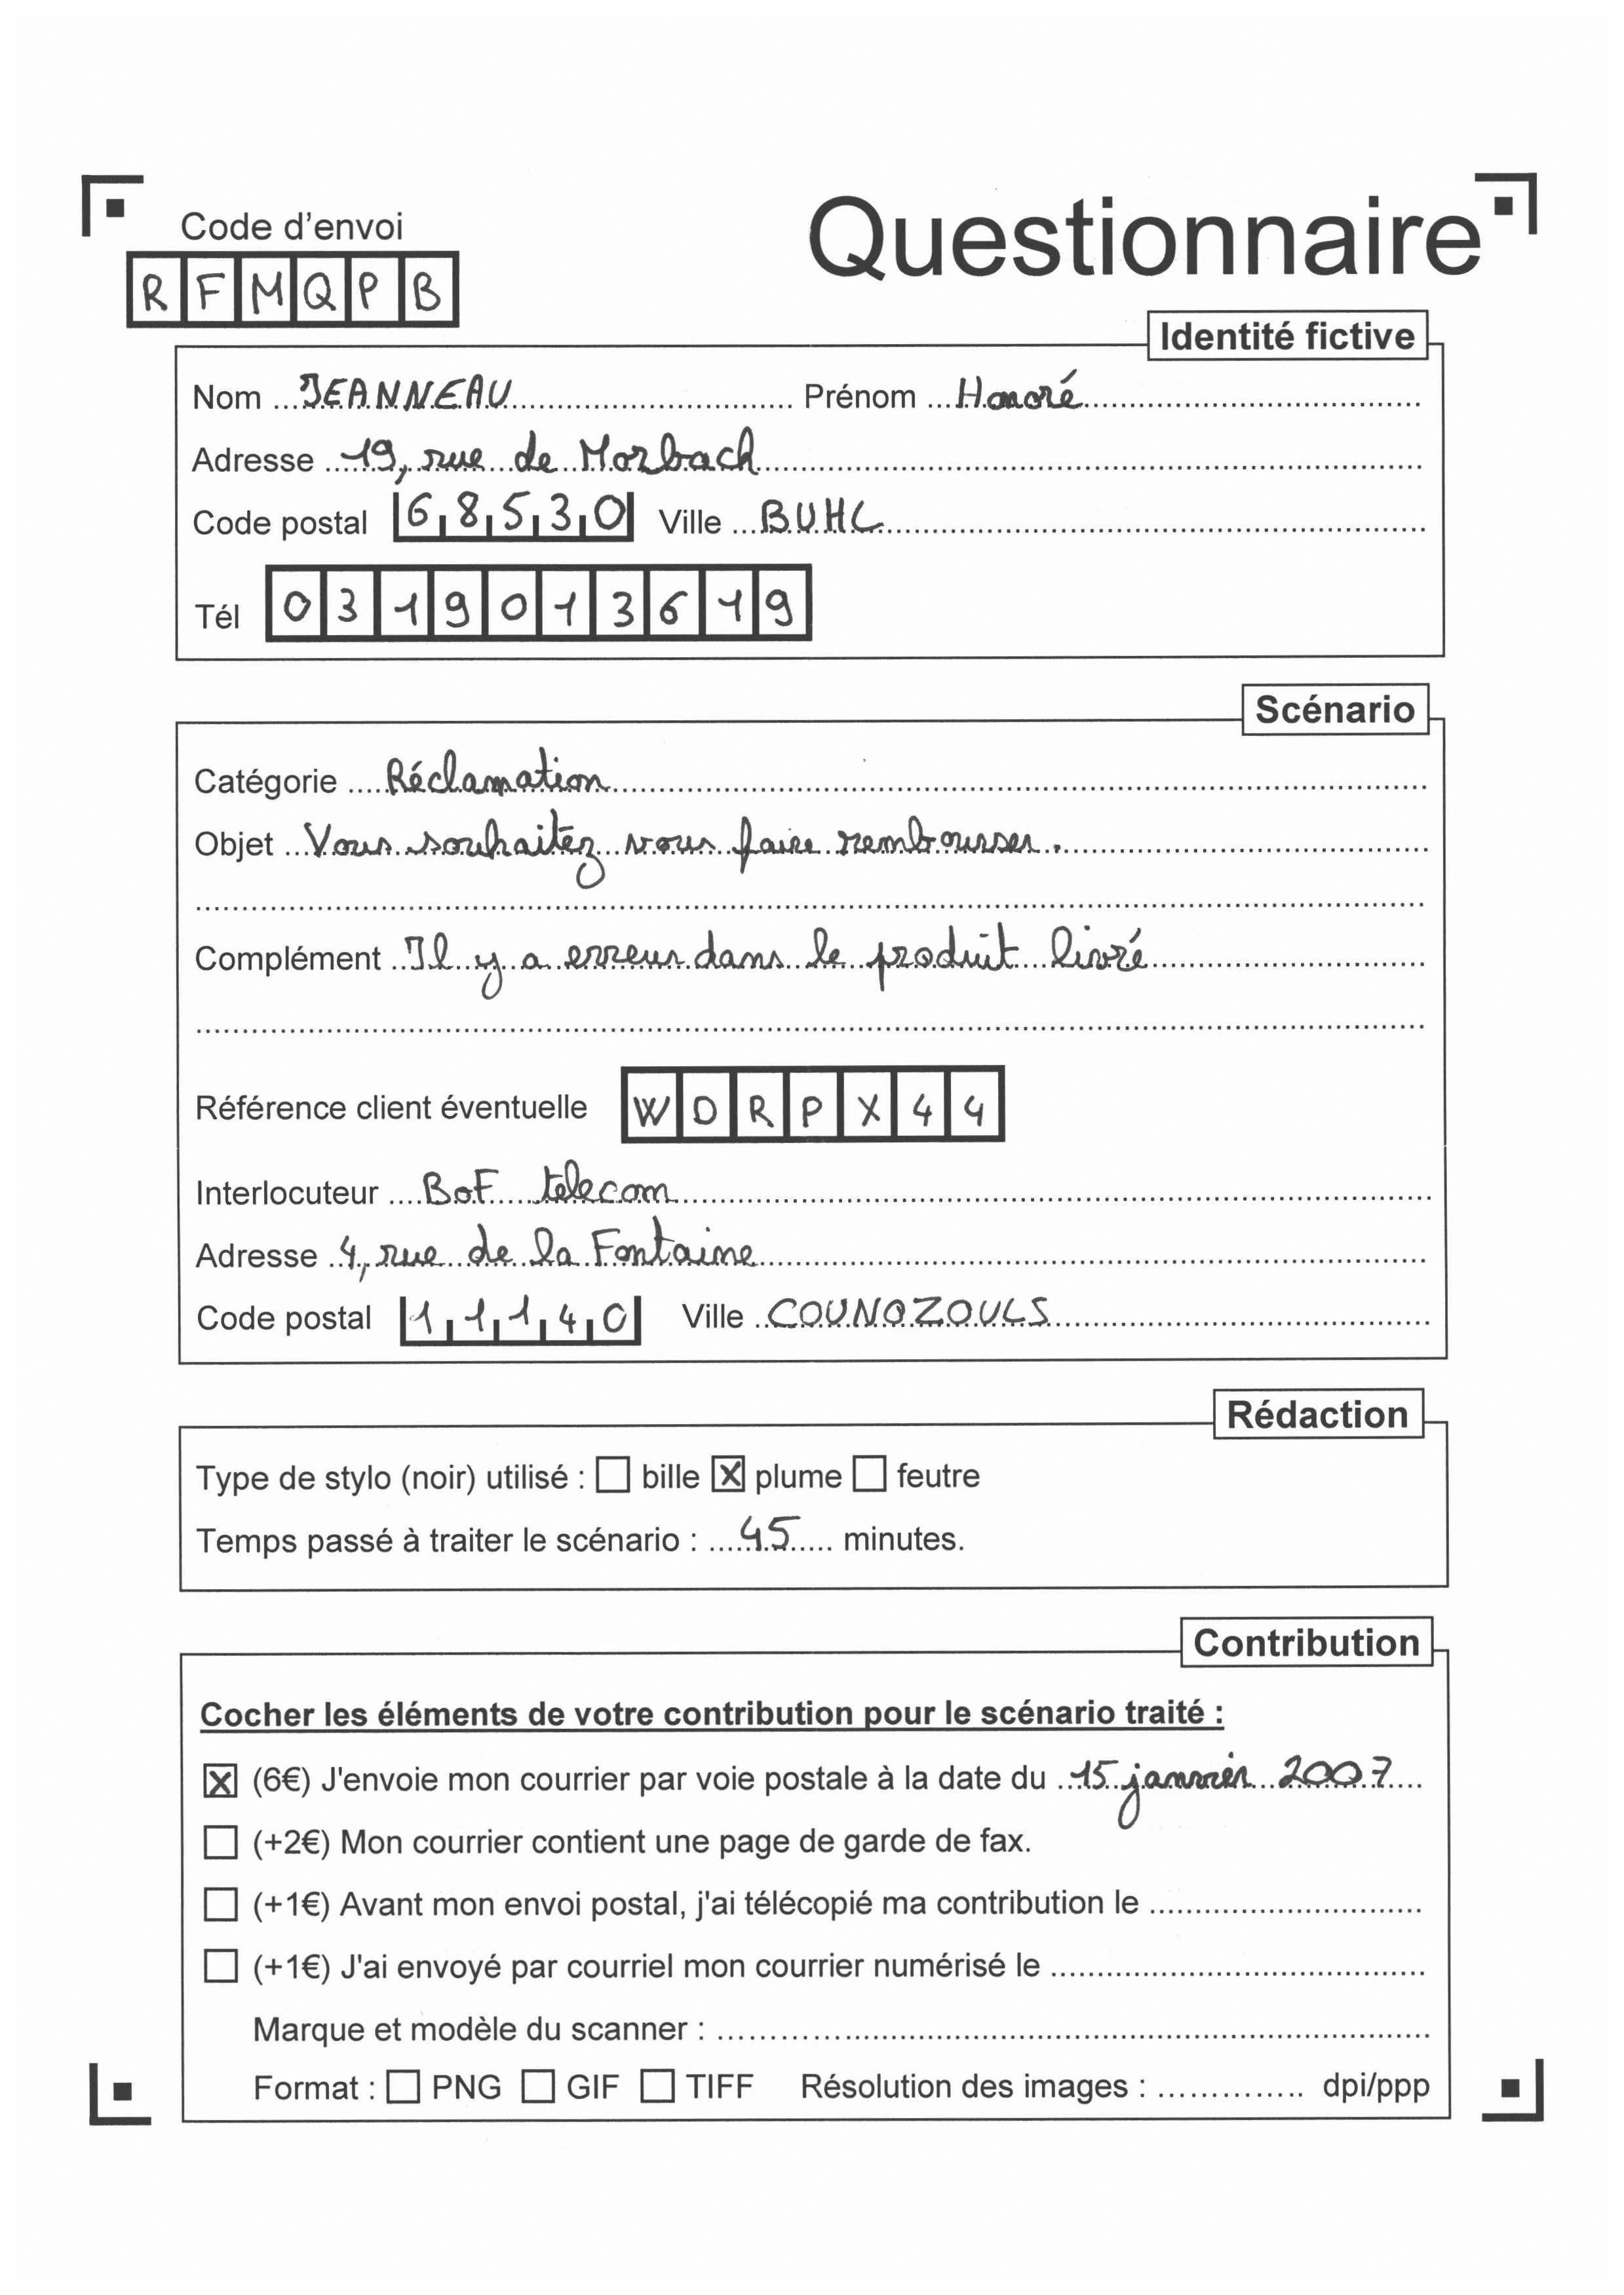 Code d'envoi
Questionnaire
RFMQPB
Identité fictive
Nom JEANNEAU Prénom Honoré
Adresse 19, rue de Morbach
Code postal 68530 Ville BUHL
Tél 0319013619
Scénario
Catégorie Réclamation
Objet Vous souhaitez vous faire rembourser.
Complément Il y a erreur dans le produit livré
Référence client éventuelle WDRPX44
Interlocuteur BoF telecom
Adresse 4, rue de la Fontaine
Code postal 11140 Ville COUNOZOULS
Rédaction
Type de stylo (noir) utilisé : ☐ bille ☒ plume ☐ feutre
Temps passé à traiter le scénario : 45 minutes.
Contribution
Cocher les éléments de votre contribution pour le scénario traité :
☒ (6€) J'envoie mon courrier par voie postale à la date du 15 janvier 2007
☐ (+2€) Mon courrier contient une page de garde de fax.
☐ (+1€) Avant mon envoi postal, j'ai télécopié ma contribution le
☐ (+1€) J'ai envoyé par courriel mon courrier numérisé le
Marque et modèle du scanner :
Format : ☐ PNG ☐ GIF ☐ TIFF Résolution des images : dpi/ppp